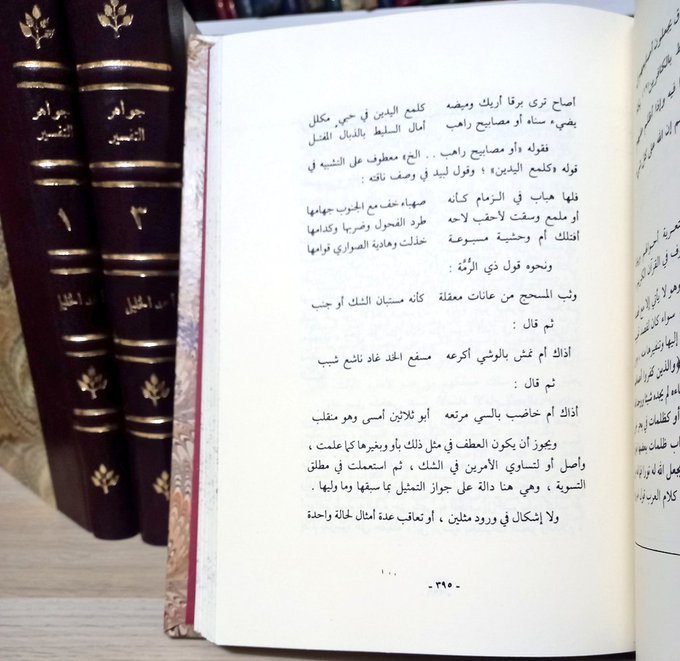 جواهر
التفسير
١
أحمد الخليلي
جواهر
التفسير
٣
أحمد الخليلي
أصاح ترى برقا أريك وميضه كلمع اليدين في حبي مكلل
يضيء سناه أو مصابيح راهب أمال السليط بالذبال المفتل
فقوله «أو مصابيح راهب .. الخ» معطوف على التشبيه في
قوله «كلمع اليدين» ؛ وقول لبيد في وصف ناقته :
فلها هباب في الزمام كأنه صهباء خف مع الجنوب جهامها
أو ملمع وسقت لأحقب لاحه طرد الفحول وضربها وكدامها
أفتلك أم وحشية مسبوعة خذلت وهادية الصواري قوامها
ونحوه قول ذي الرُّمَّة :
وثب المسحج من عانات معقلة كأنه مستبان الشك أو جنب
ثم قال :
أذاك أم نمش بالوشي أكرعه مسفع الخد غاد ناشع شبب
ثم قال :
أذاك أم خاضب بالسي مرتعه أبو ثلاثين أمسى وهو منقلب
ويجوز أن يكون العطف في مثل ذلك بأو وبغيرها كما علمت ،
وأصل أو لتساوي الأمرين في الشك ، ثم استعملت في مطلق
التسوية ، وهي هنا دالة على جواز التمثيل بما سبقها وما وليها .
ولا إشكال في ورود مثلين ، أو تعاقب عدة أمثال لحالة واحدة
- ٣٩٥ -
يجعلون
فيه وإذا أظلم
إن الله على كل
في القرآن
وهو لا يأتي إلا
سواء كان
إليها
والذين كفروا
لم يجده شيئا
أو كظلمات في
ظلمات بعضها
يجعل الله له نورا
كلام العرب